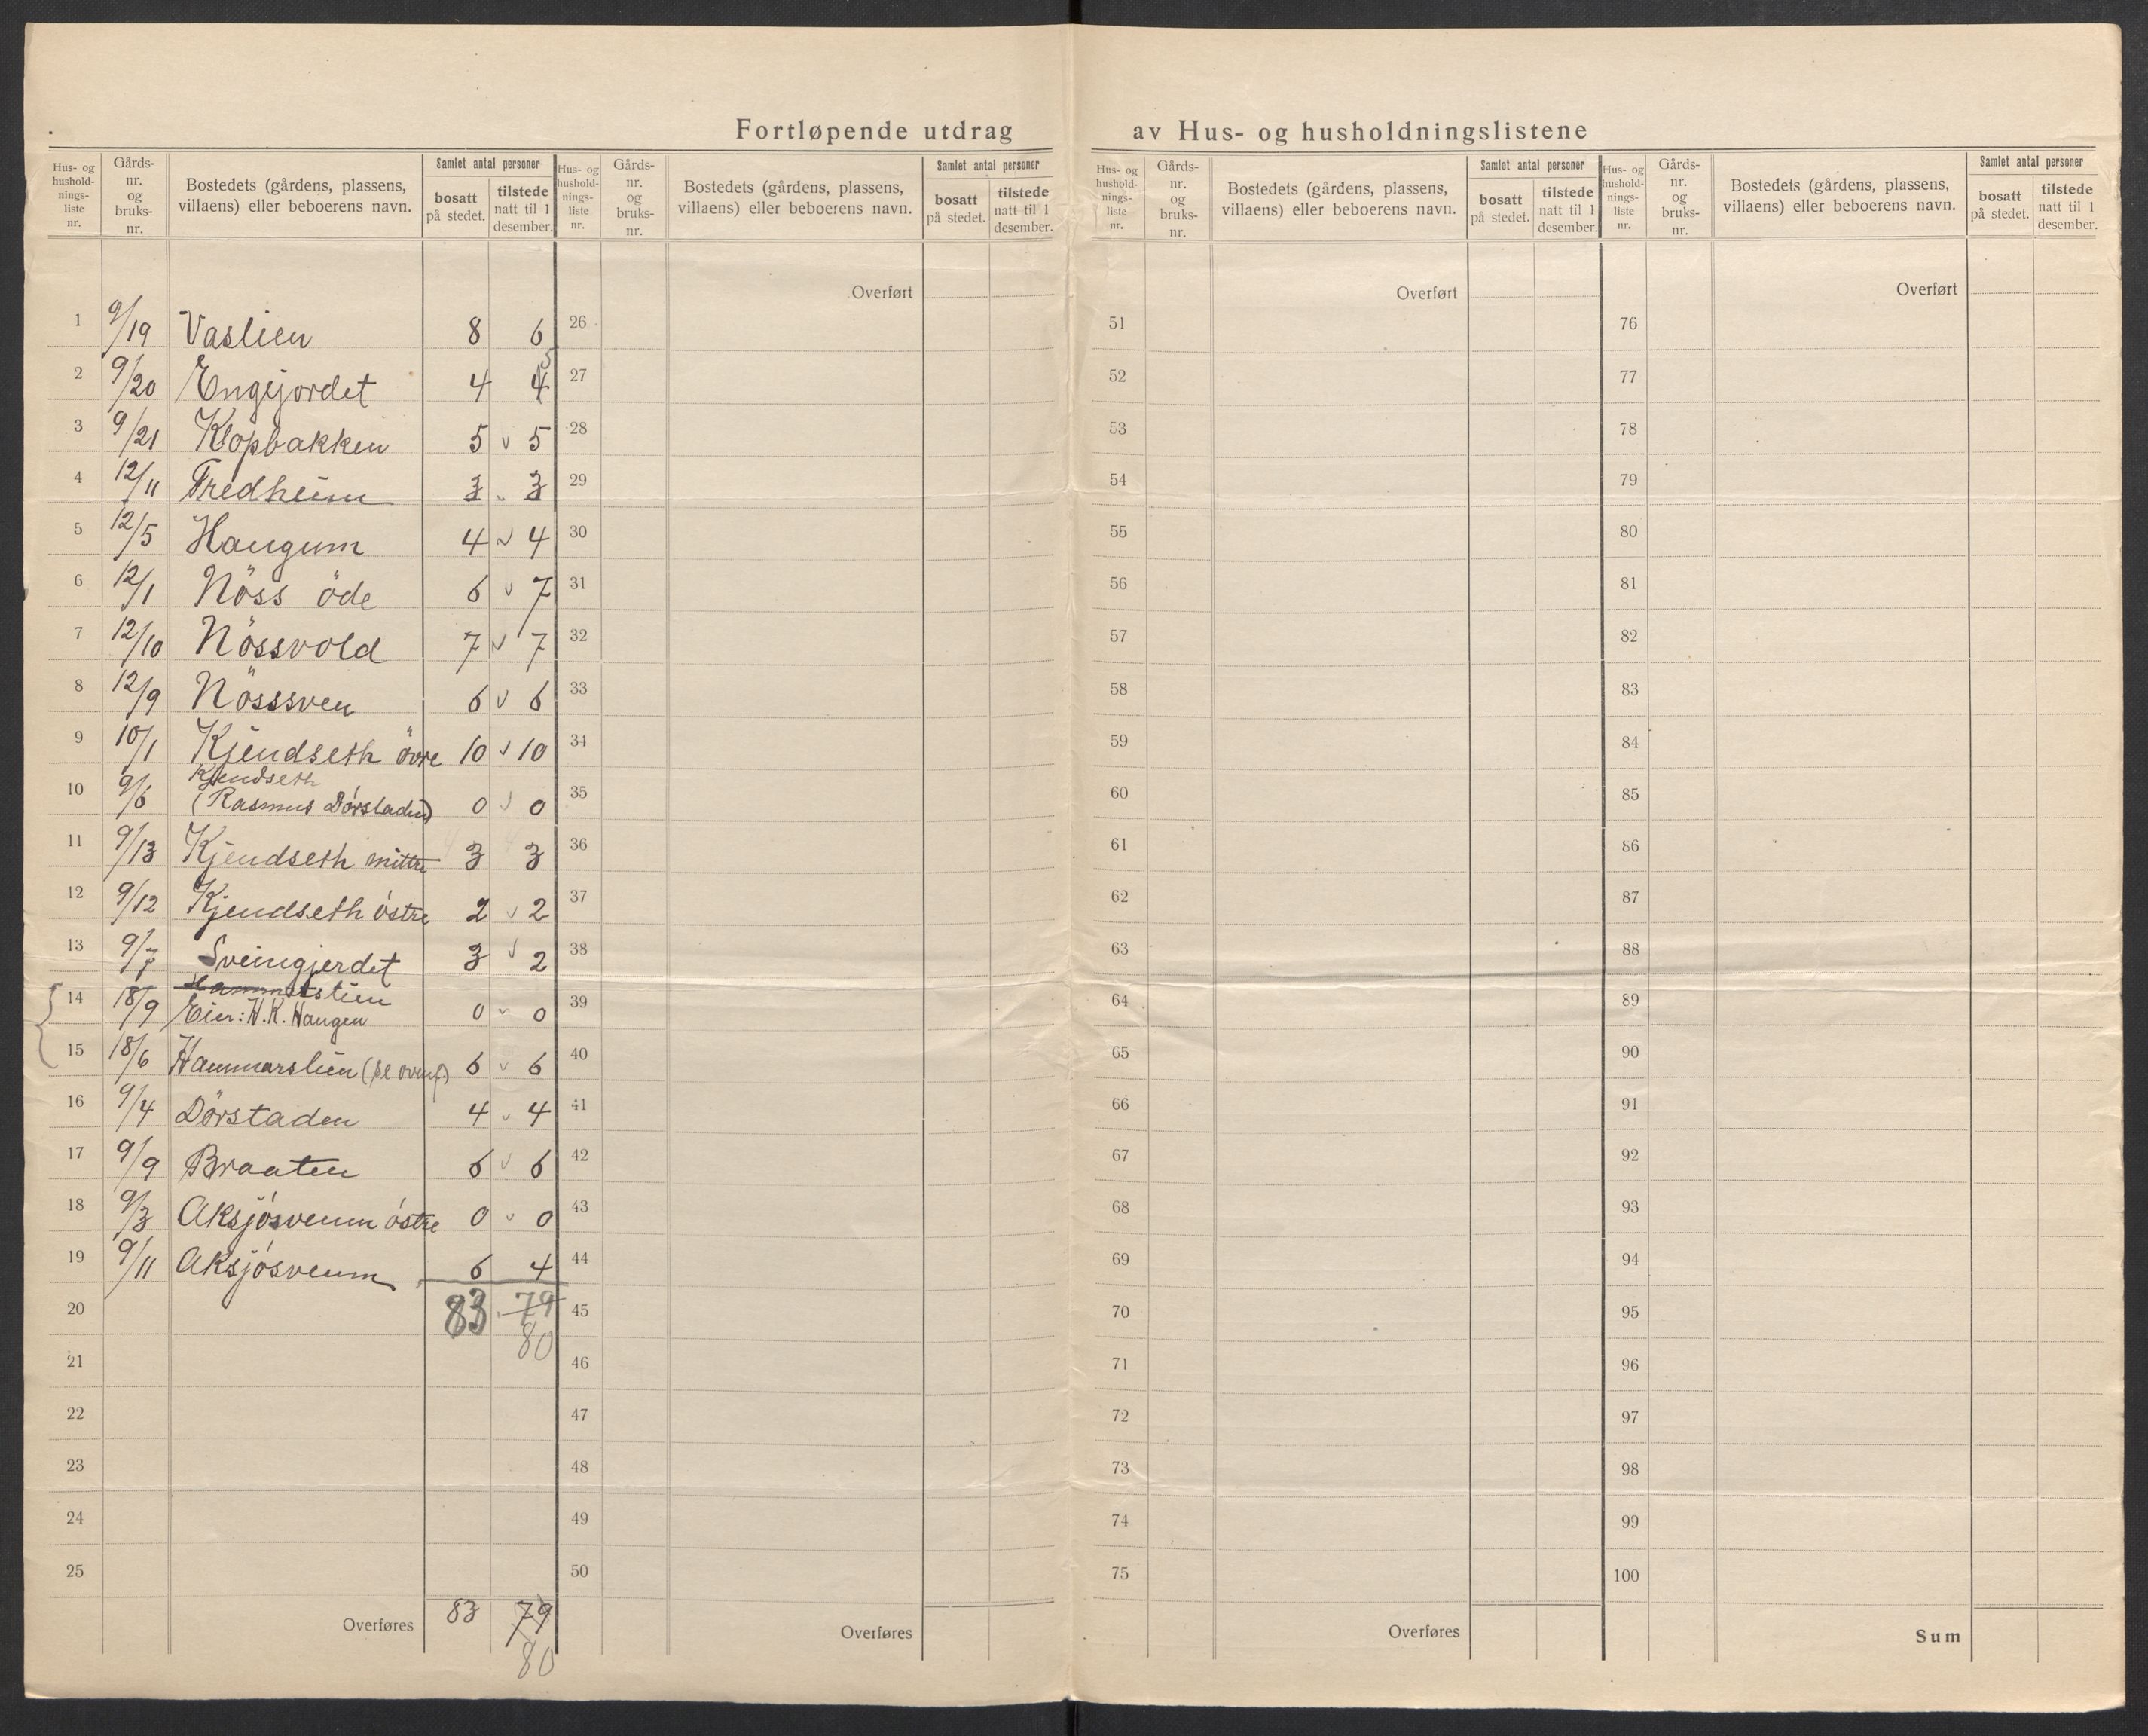 Fortløpende utdrag av Hus- og husholdningslistene
Hus- og
hushold-
nings-
liste
nr.
Gårds-
nr.
og
bruks-
nr.
Bostedets (gårdens, plassens,
villaens) eller beboerens navn.
Samlet antal personer
bosatt
på stedet.
tilstede
natt til 1
desember.
Hus- og
hushold-
nings-
liste
nr.
Gårds-
nr.
og
bruks-
nr.
Bostedets (gårdens, plassens,
villaens) eller beboerens navn.
Samlet antal personer
bosatt
på stedet.
tilstede
natt til 1
desember.
Hus- og
hushold-
nings-
liste
nr.
Gårds-
nr.
og
bruks-
nr.
Bostedets (gårdens, plassens,
villaens) eller beboerens navn.
Samlet antal personer
bosatt
på stedet.
tilstede
natt til 1
desember.
Hus- og
hushold-
nings-
liste
nr.
Gårds-
nr.
og
bruks-
nr.
Bostedets (gårdens, plassens,
villaens) eller beboerens navn.
Samlet antal personer
bosatt
på stedet.
tilstede
natt til 1
desember.
Overført Overført Overført
1 9/19 Vaslien 8 6 26 51 76
5
2 9/20 Engijordet 4 4 27 52 77
3 9/21 Klopbakken 5 v 5 28 53 78
4 12/11 Fredheim 3 3 29 54 79
5 12/5 Haugum 4 v 4 30 55 80
6 12/1 Nöss öde 6 v 7 31 56 81
7 12/10 Nössvold 7 v 7 32 57 82
8 12/9 Nösssven 6 v 6 33 58 83
9 10/1 Kjendseth övre 10 v 10 34 59 84
Kjendseth
10 9/6 (Rasmus Dórstaden) 0 v 0 35 60 85
11 9/13 Kjendseth mittre 3 3 36 61 86
12 9/12 Kjendseth óstre 2 v 2 37 62 87
13 9/7 Sveingjerdet 3 v 2 38 63 88
Hammerslien
14 18/9 Eier: H. K. Haugen 0 v 0 39 64 89
15 18/6 Hammarslien (se ovenf.) 6 v 6 40 65 90
16 9/4 Dörstaden 4 v 4 41 66 91
17 9/9 Braaten 6 v 6 42 67 92
18 9/3 Aksjósveum óstre 0 v 0 43 68 93
19 9/11 Aksjósveum 6 4 44 69 94
20 83 79 45 70 95
80
21 46 71 96
22 47 72 97
23 48 73 98
24 49 74 99
25 50 75 100
Overføres 83 79 Overføres Overføres Sum
80